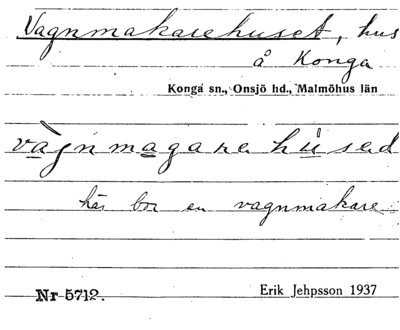 Vagnmakarehuset, hus
å Konga
Konga sn., Onsjö hd., Malmöhus län
vàgnmagarehúsed
här bor en vagnmakare
Nr 5712.
Erik Jehpsson 1937